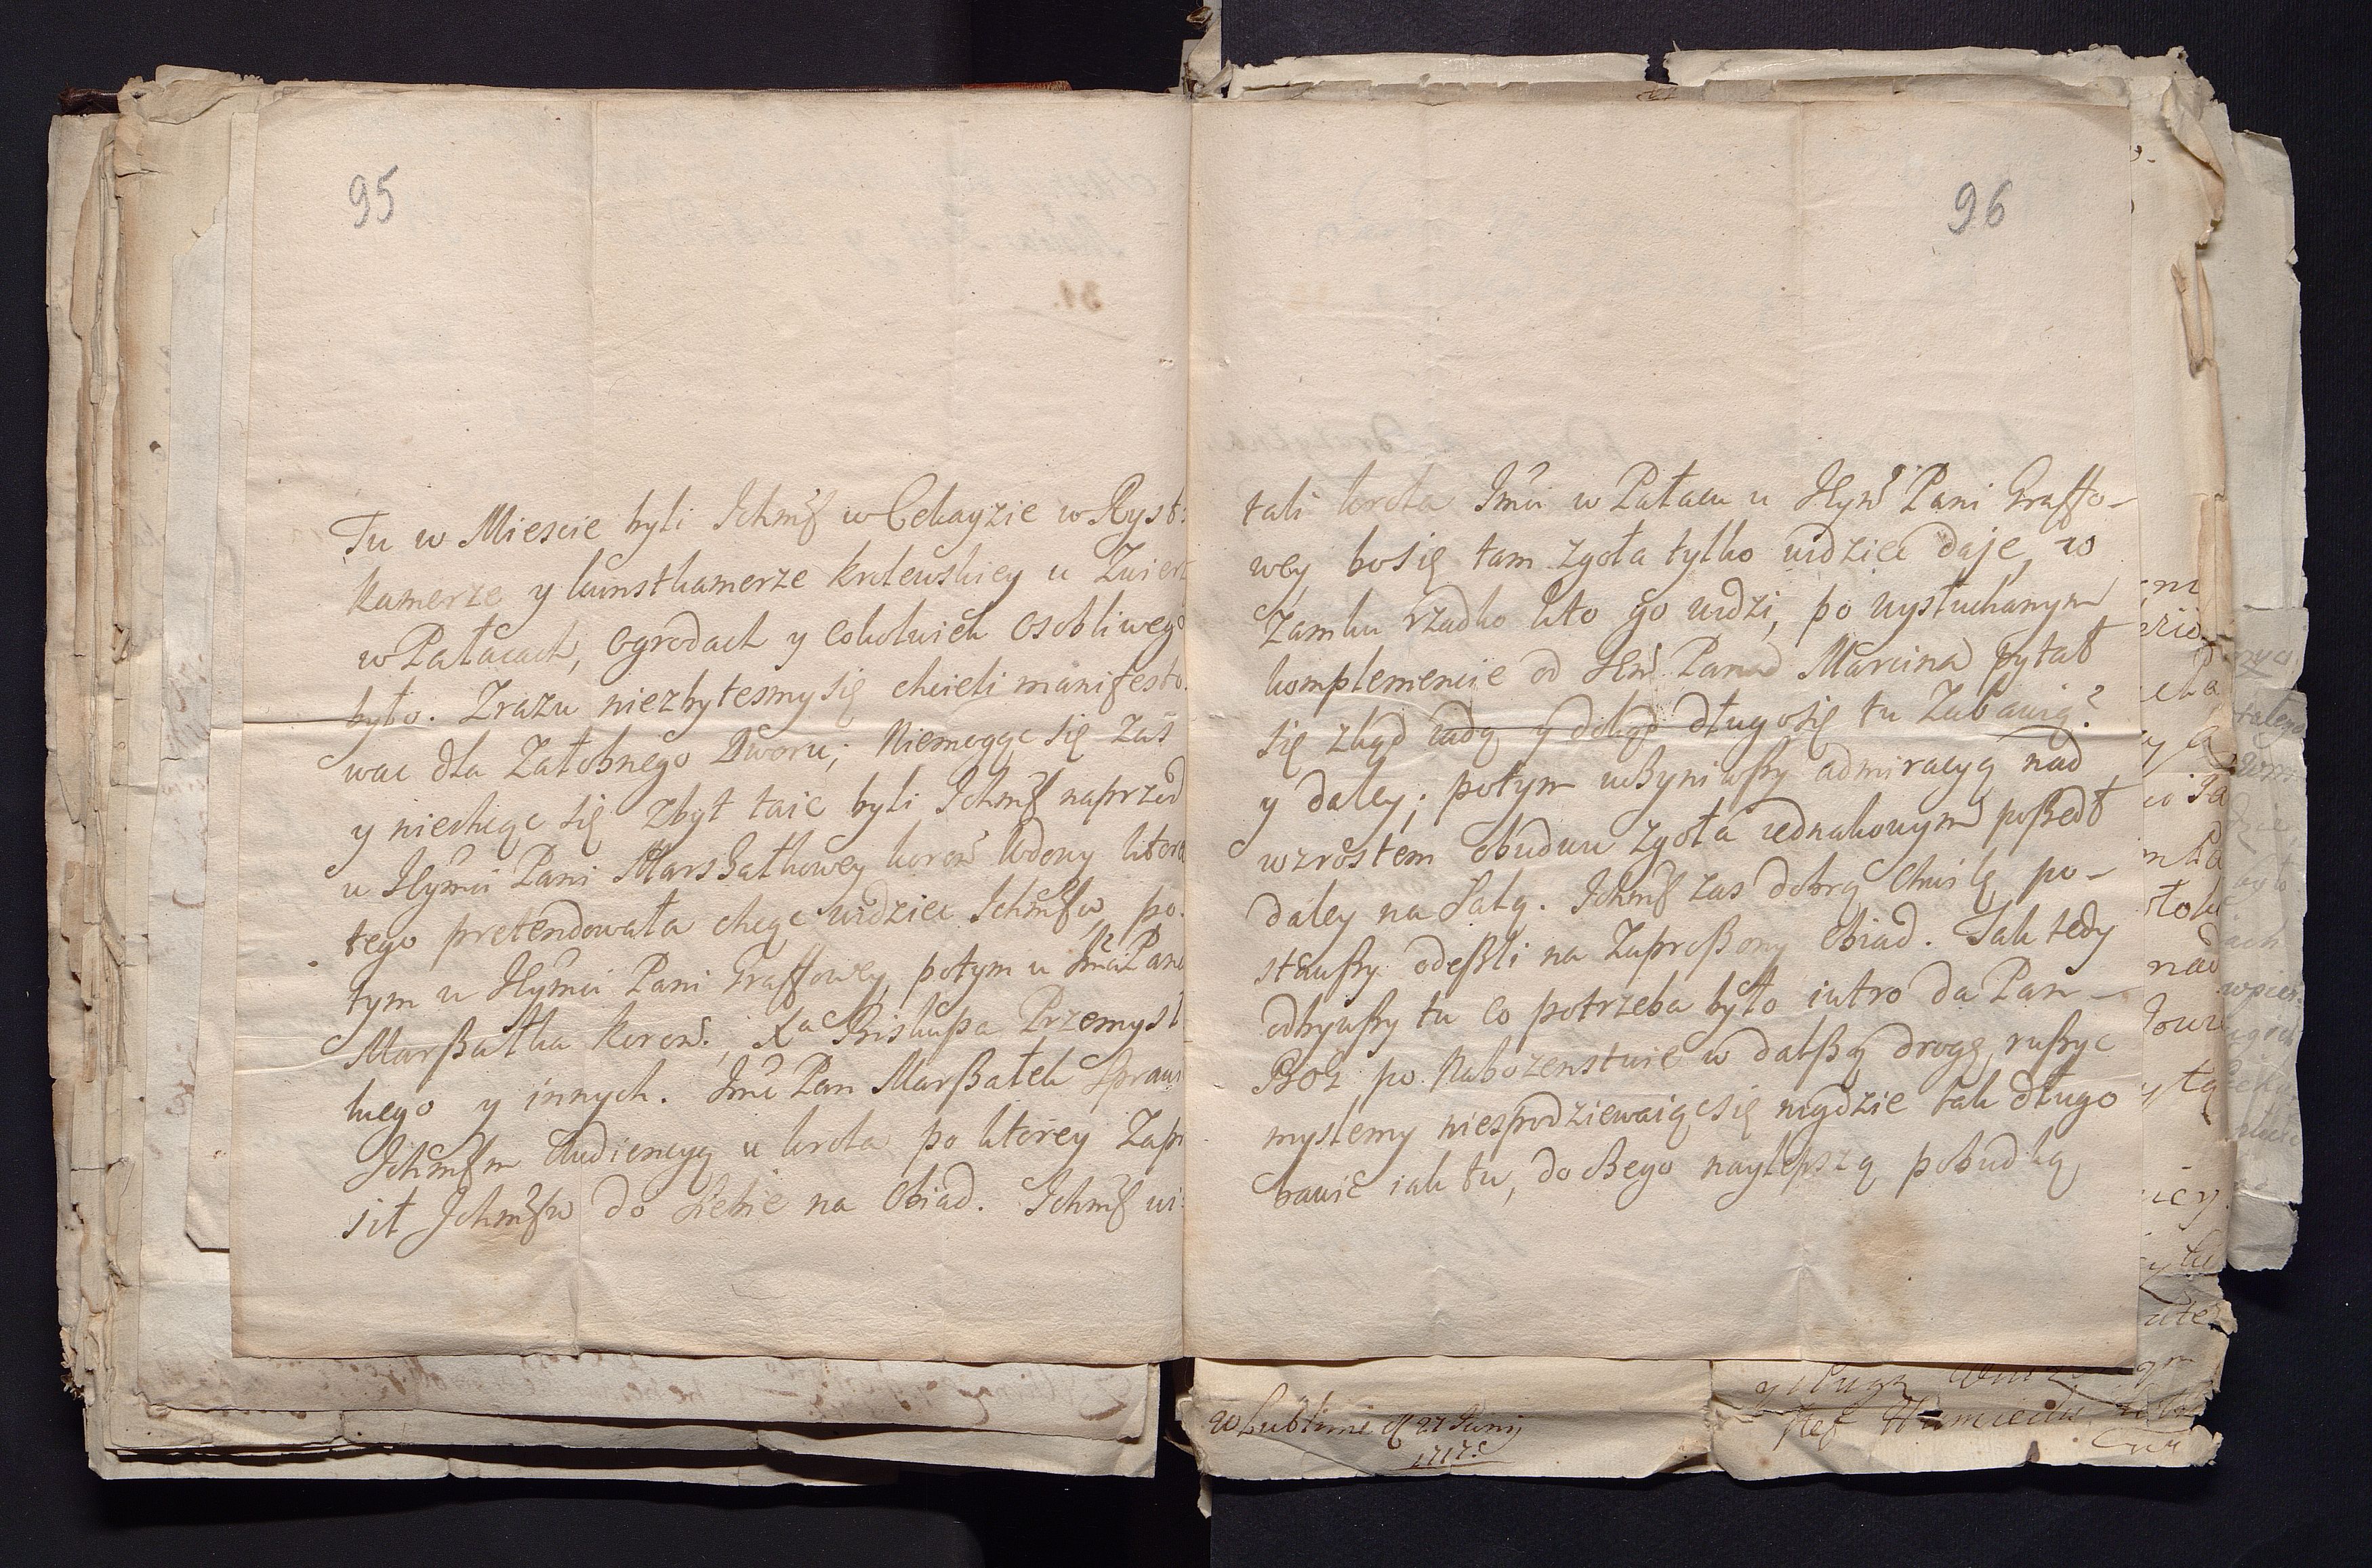 95
Tu w Miescie byli Ichmść w Cekayzie w Ryst:
kamerze y kunstkamerze krolewskiey u Zwierc
w Pałacach, ogrodach y cokolwiek osobliwego
było. Zrazu niezbytesmy się chcieli manifesto.
wac dla Załobnego Dworu; Niemogąc się zaś
y niechcąc się zbyt taic byli Ichmść naprzod
u Jeymci Pani Marszałkowey koron wdowy ktora
tego pretendowała chcąc widziec Ichmściow, po.
tym u Jeymci Pani Graffowey, potym u Jmci Pana
Marszałka koron., Xa Biskupa Przemysl
kiego y innych. Jmć Pan Marszałek sprawi
Ichmściom Audiencyą u krola po ktorey Zapr
sił Ichmściow do siebie na Obiad. Ichmść wi:
96
tali krola Jmci w Pałacu u Jeym Pani Graffo-
wey, bo się tam zgoła tylko widziec daje, w
Zamku rzadko kto go widzi, po wysłuchanym
komplemencie od Jm Pana Marcina pytał
się zkąd iadą y dokąd długo się tu Zabawią?
y daley; potym uczyniwszy admiracyą nad
wzrostem obudwu zgoła iednakowym poszedł
daley na Salą. Ichmść zas dobrą chwilę po-
stawszy odeszli na Zaproszony Obiad. Jak tedy
odbywszy tu co potrzeba było iutro da Pan
Bog po Nabozenstwie w dalszą drogę ruszyc
myslemy niespodziewaiąc się nigdzie tak długo
bawić iak tu, do czego naylepszą pobudką
w Lublinie d 27 Junij
1717.